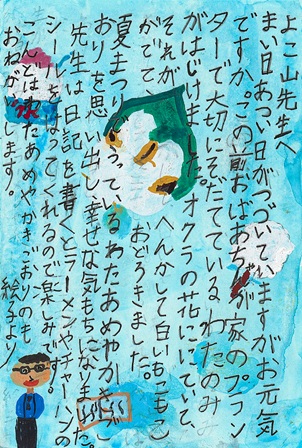 よこ山先生へ
まい日あつい日がつづいていますがお元気
ですか。この前おばあちゃんが家のプラン
ターで大切にそだてているわたのみ
がはじけました。オクラの花ににていて、
それがへんかして白いもこもこ
がでてて、おどろきました。
夏まつりでうっているわたあめやかきごお
りを思い出し、幸せな気もちになりました。
先生は日記を書くとラーメンやチャーハンの
シールをはってくれるので楽しみです。
こんどはわたあめやかきごおりのも
おねがいします。 絵子より
氷